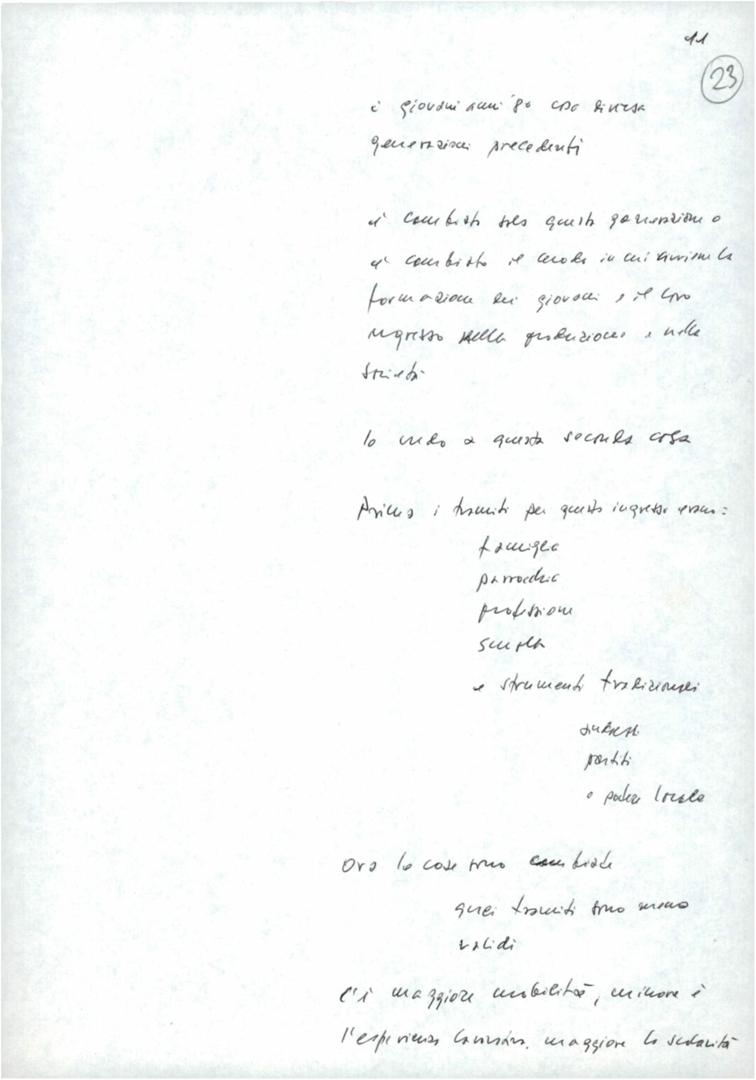 11
23
i giovani anni '80 cosa diversa
generazioni precedenti
è cambiata solo questa generazione o
è cambiato il modo in cui avviene la
formazione dei giovani e il loro
ingresso nella produzione e nella
società
Io vedo a questa seconda cosa
Prima i tramiti per questo ingresso erano:
famiglia
parrocchia
professione
scuola
e strumenti tradizionali
sindacati
partiti
e poter locale
Ora le cose sono cambiate
quei tramiti sono meno
validi
C'è maggiore mobilità, minore è
l'esperienza lavorativa, maggiore la scolarità